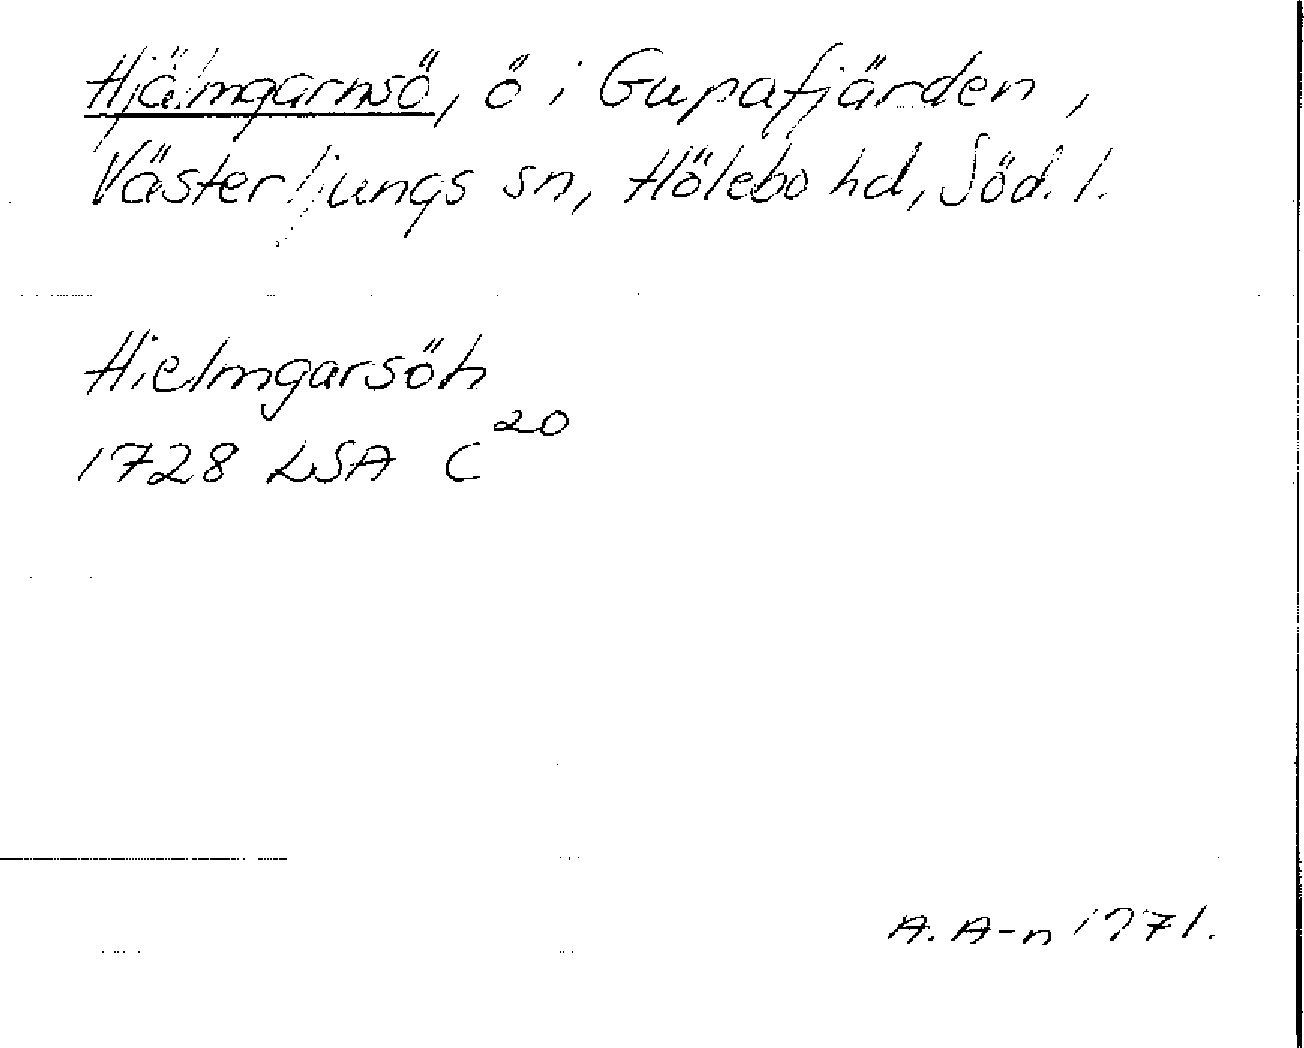 Hjälmgarnsö, ö i Gupafjärden,
Västerljungs sn, Hölebo hd, Söd. l.
Hielmgarsöh
1728 LSA C 20
A. A-n 1971.